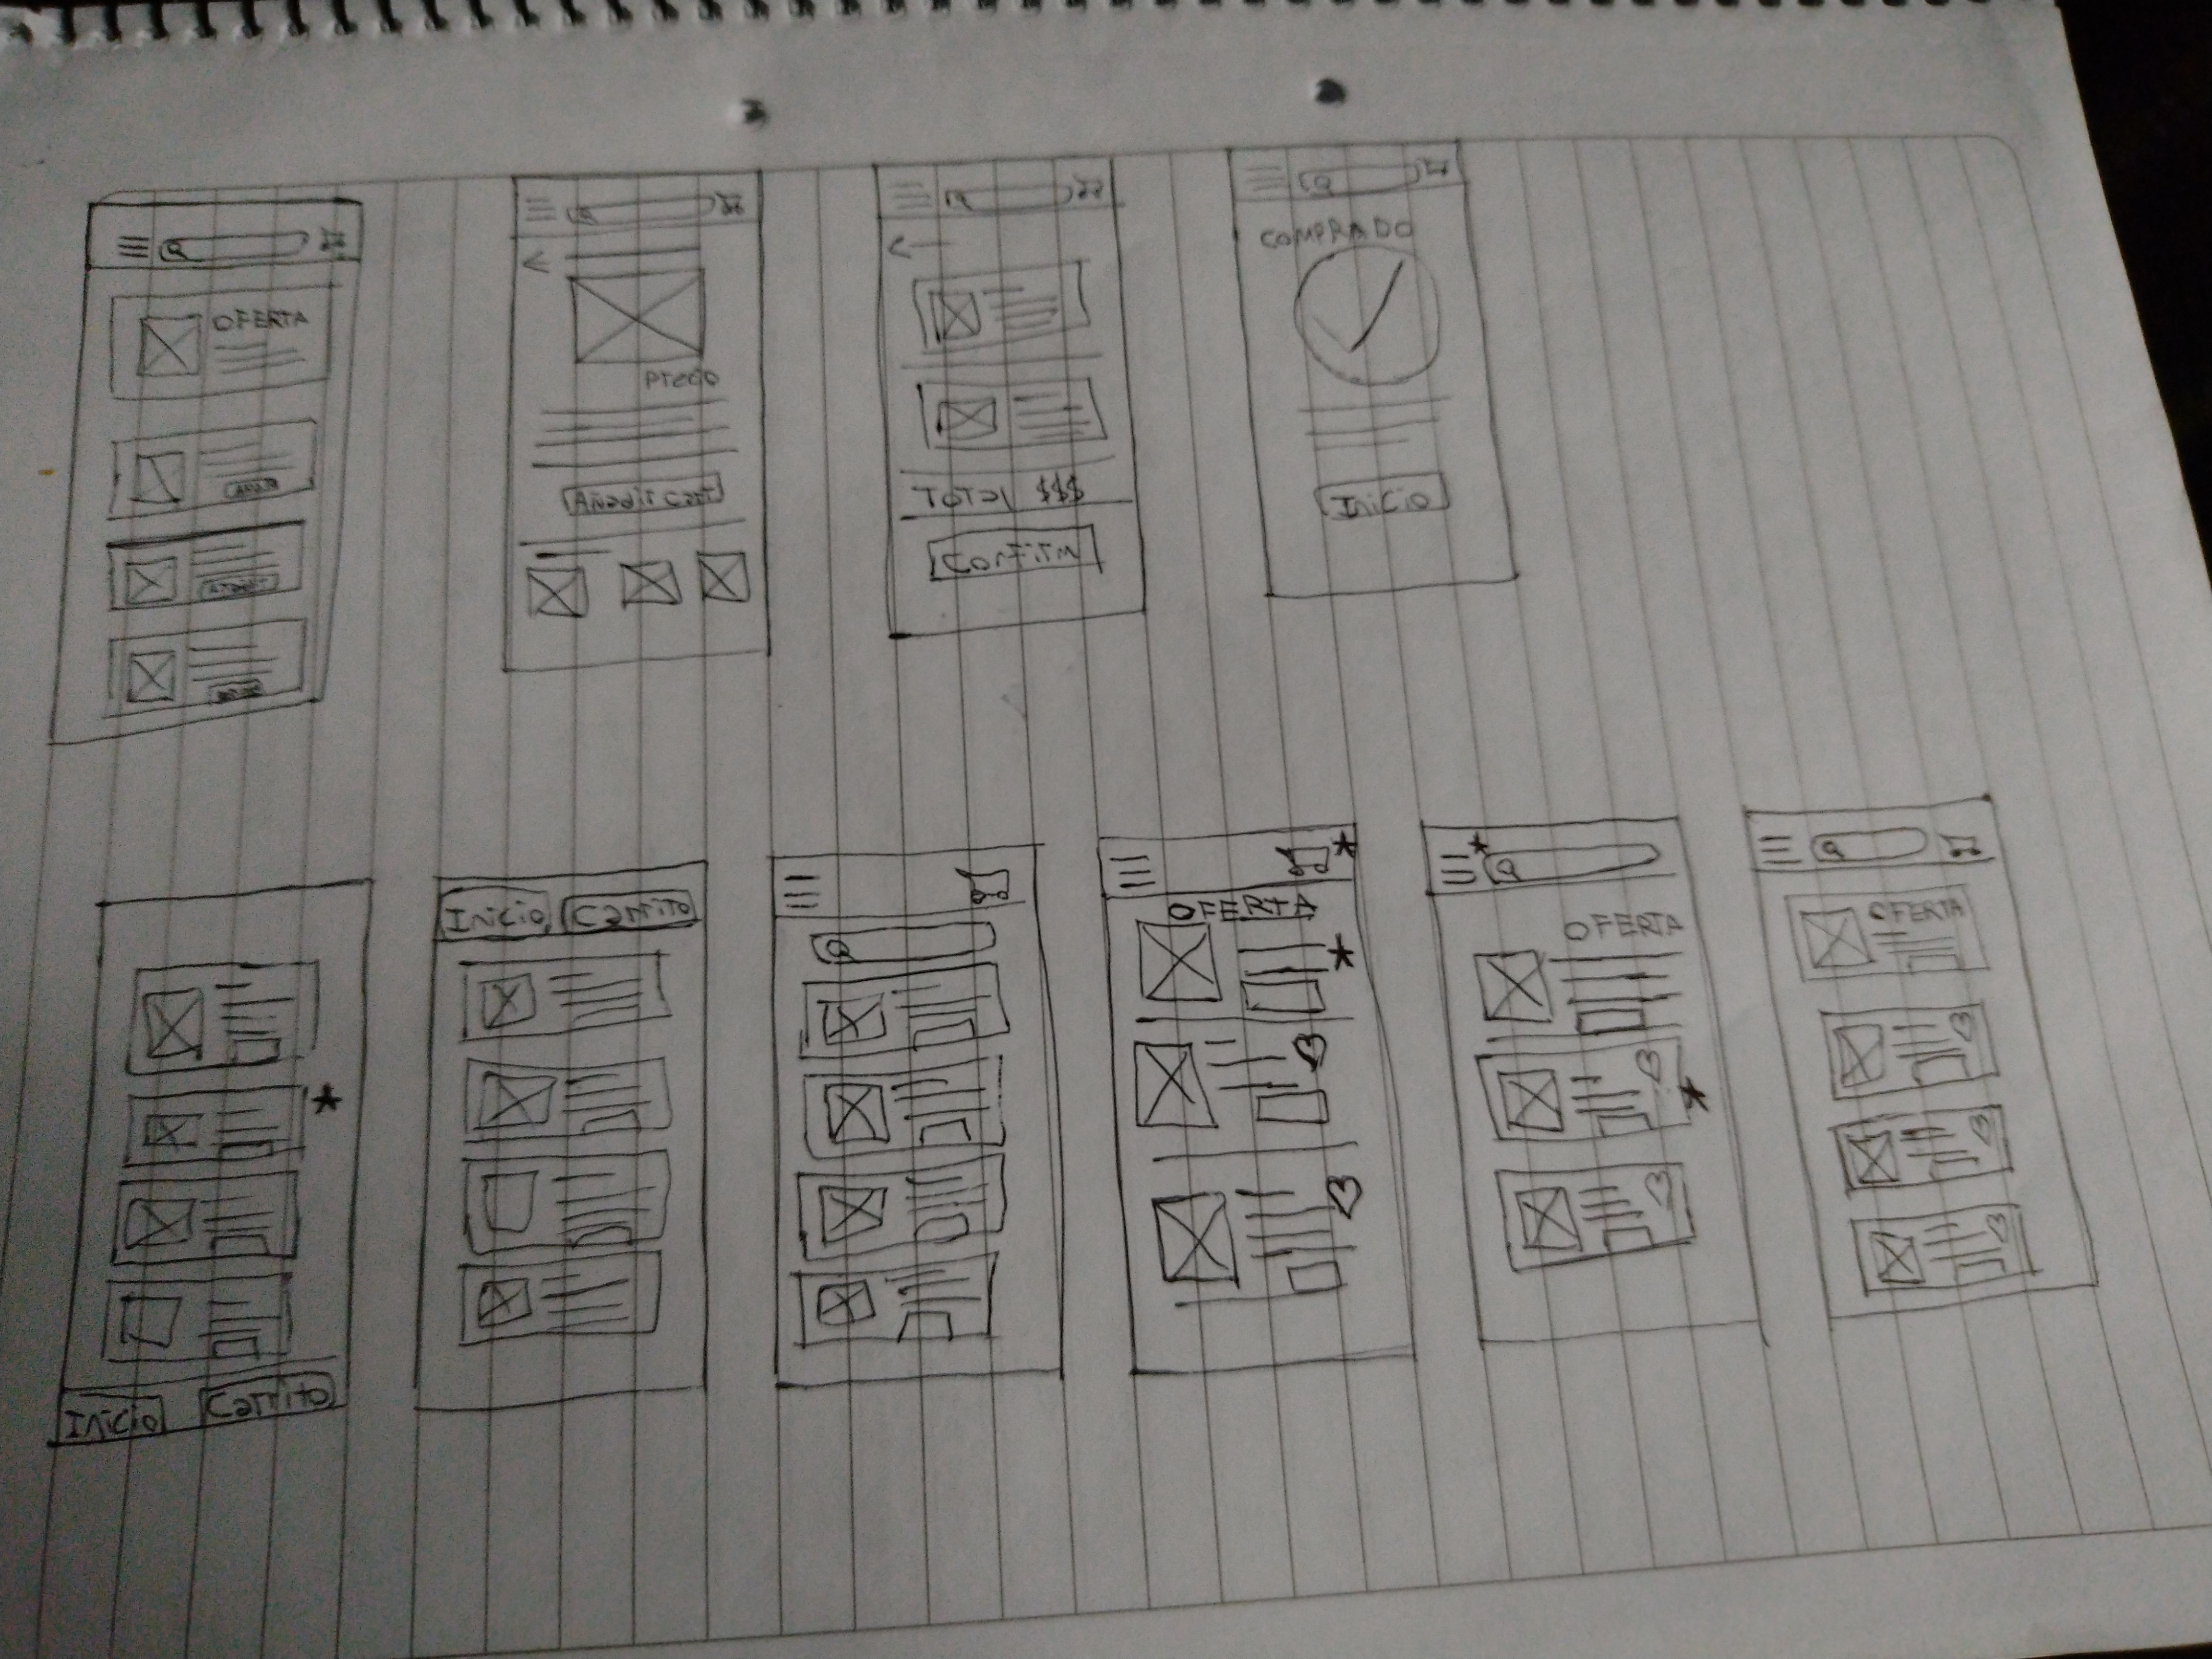 OFERTA
Precio
Añadir cart
Total $$$
Confirm
COMPRADO
Inicio
Inicio
Carrito
Inicio
Carrito
OFERTA
OFERTA
OFERTA